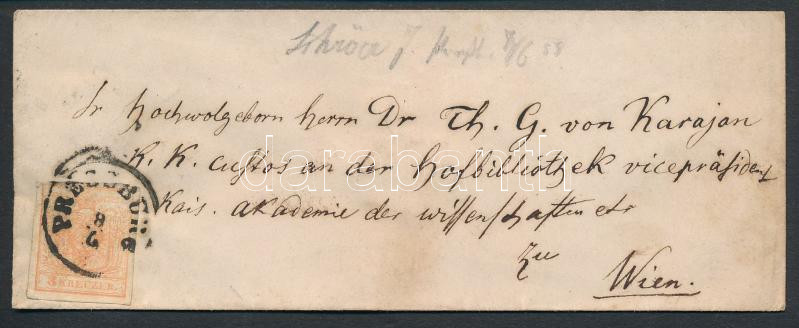 8/6 58
Sr Hochwolgeborn Herrn Dr Th. G. von Karajan
K. K. Custos an der Hofbibliothek Vicepräsident
Kais. Akademie der Wissenschaften etc
zu
Wien.
PRESSBURG
8
6
3 KREUZER
darabanth